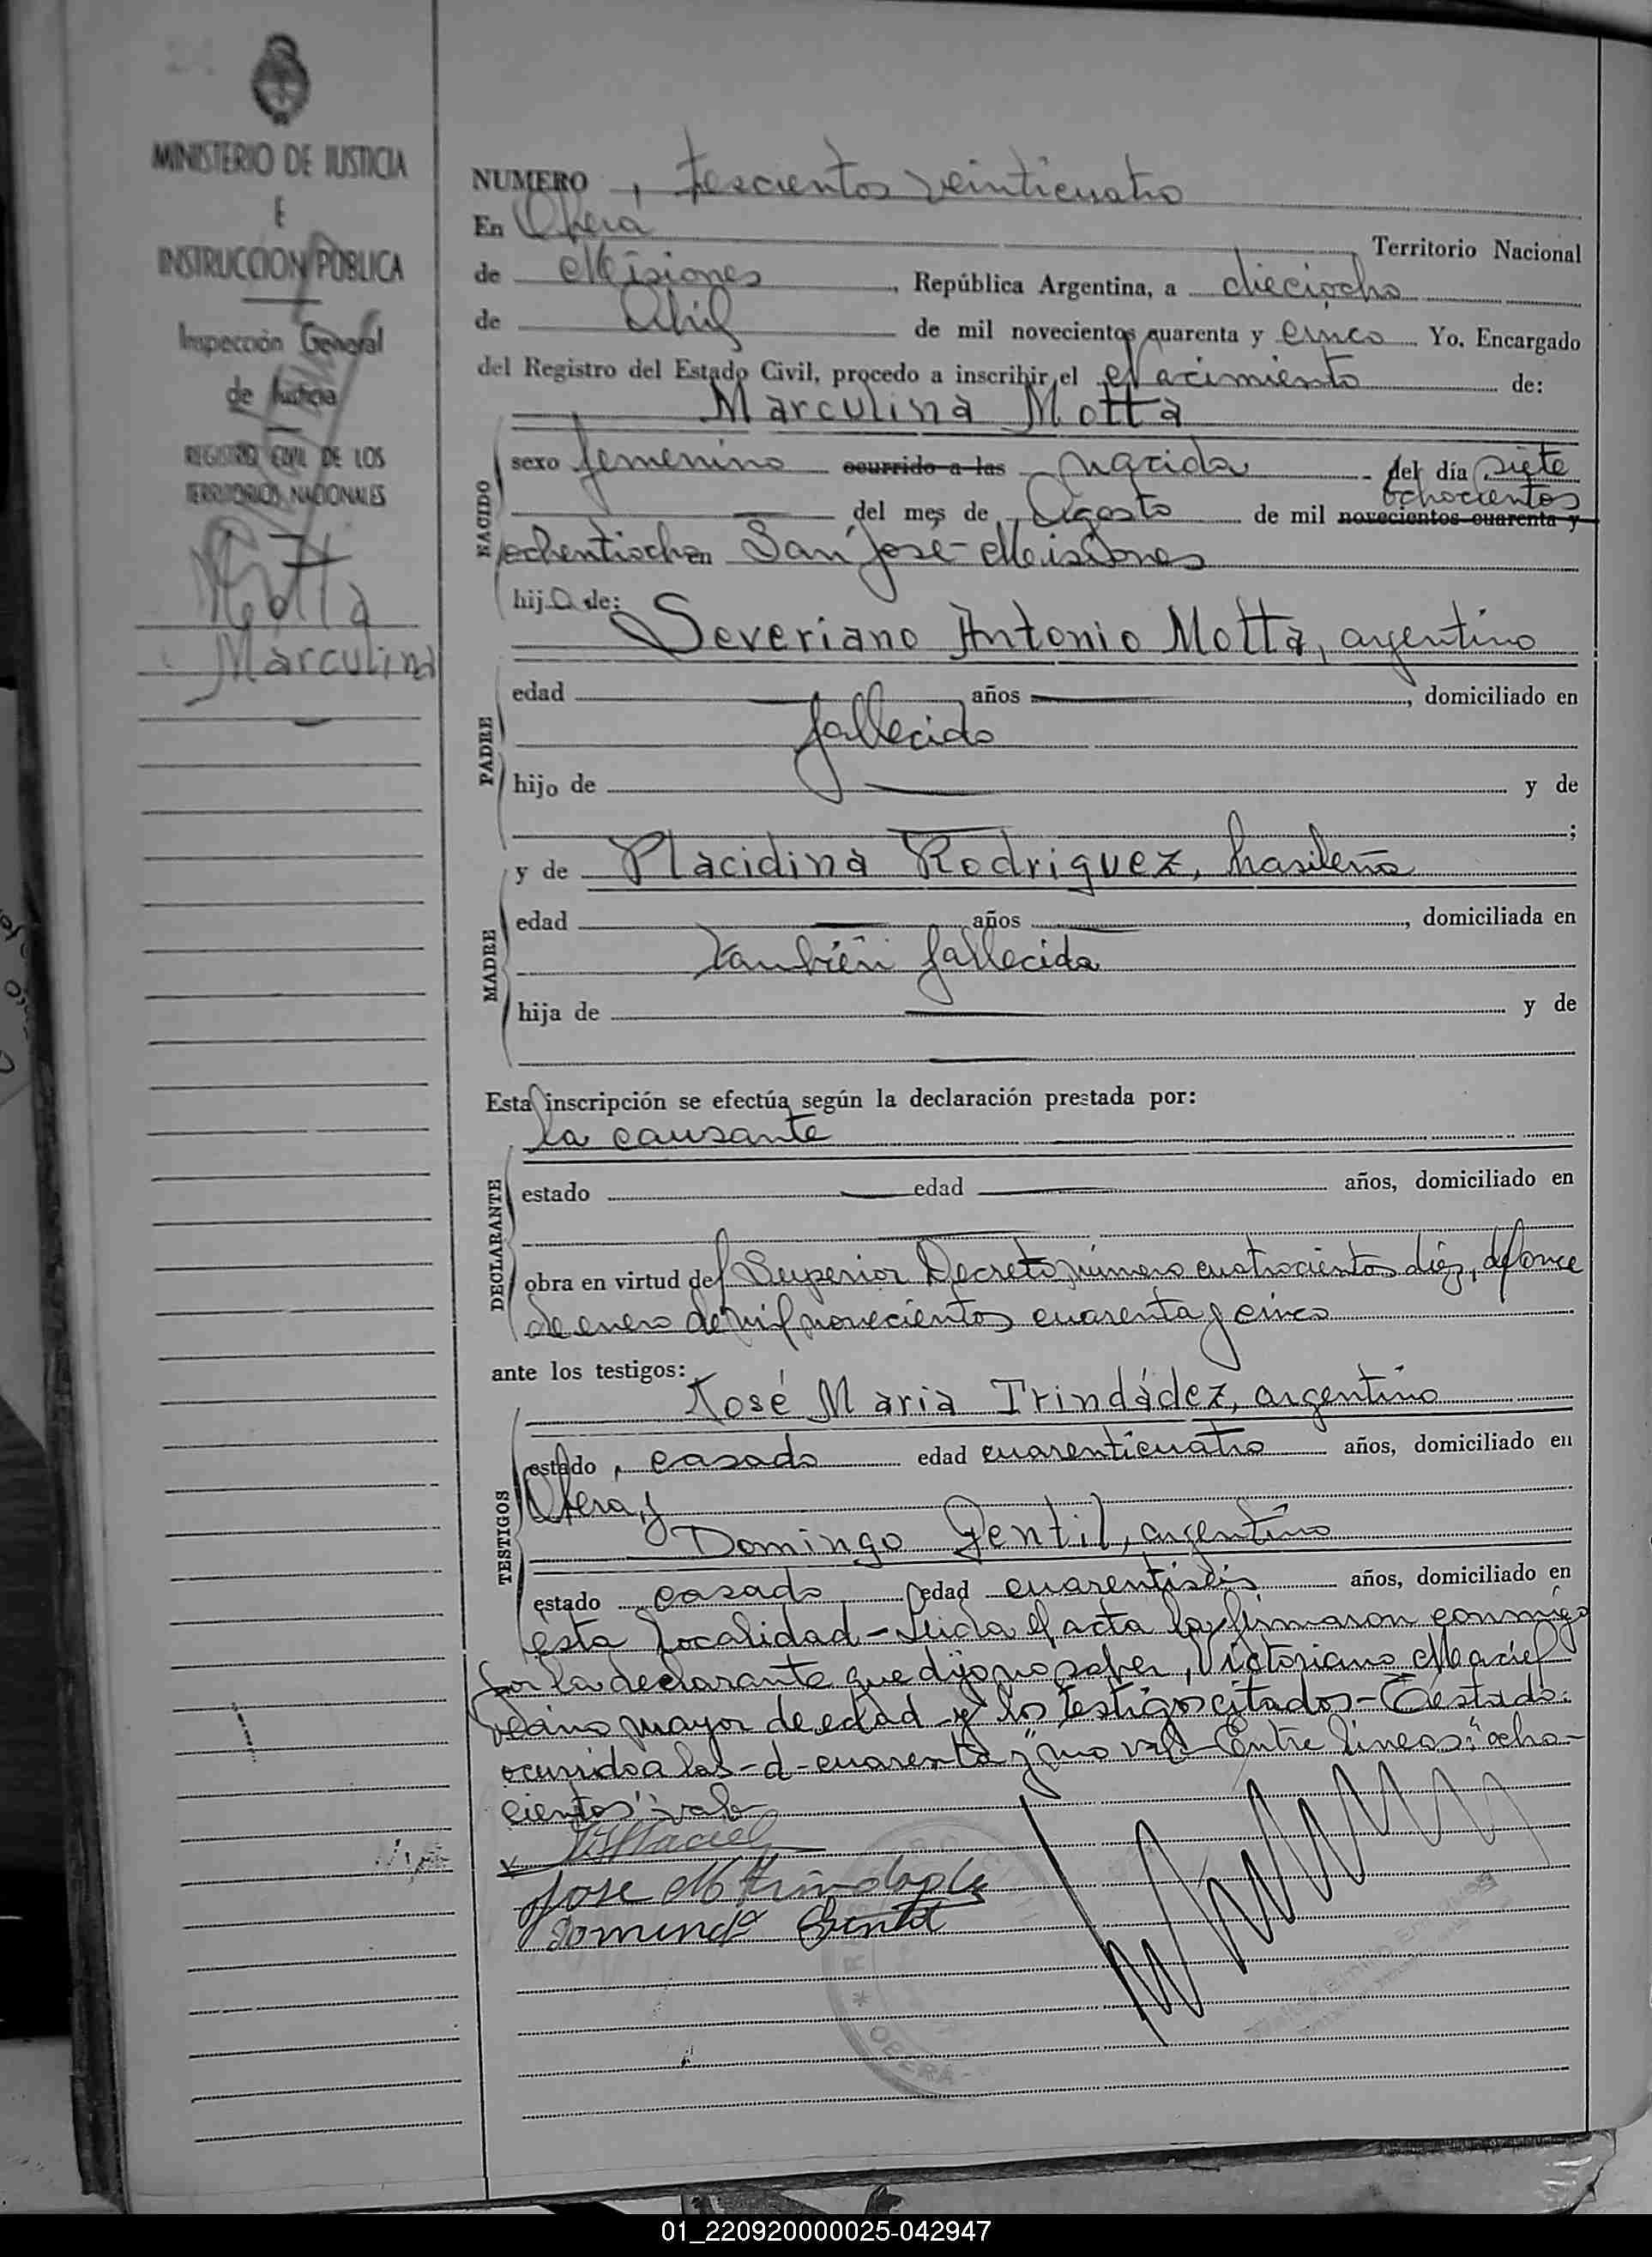 MINISTERIO DE JUSTICIA
E
INSTRUCCION PUBLICA
Inspección General
de Justicia
REGISTRO CIVIL DE LOS
TERRITORIOS NACIONALES
Motta
Marculina
NUMERO, Trescientos veinticuatro
En Obera Territorio Nacional
de Misiones, República Argentina, a dieciocho
de Abril de mil novecientos cuarenta y cinco Yo, Encargado
del Registro del Estado Civil, procedo a inscribir el Nacimiento de:
Marculina Motta
NACIDO
sexo femenino ocurrido a las nacida del día siete
ochocientos
del mes de Agosto de mil novecientos cuarenta y
ochentiocho en San José - Misiones
hija de:
Severiano Antonio Motta, argentino
PADRE
edad años, domiciliado en
fallecido
hijo de y de
;
y de Placidina Rodriguez, brasileña
MADRE
edad años, domiciliada en
también fallecida
hija de y de
Esta inscripción se efectúa según la declaración prestada por:
la causante
DECLARANTE
estado edad años, domiciliado en
obra en virtud del Superior Decreto número cuatrocientos diez, del once
de enero de mil novecientos cuarenta y cinco
ante los testigos:
José Maria Trindádez, argentino
TESTIGOS
estado, casado edad cuarenticuatro años, domiciliado en
Obera, y
Domingo Gentil, argentino
estado casado edad cuarentiséis años, domiciliado en
esta localidad - Leida el acta la firmaron conmigo
por la declarante que dijo no saber, Victoriano Maciel
vecino mayor de edad y los testigos citados - Testado:
ocurrido a las - d - cuarenta y" no vale Entre lineas: "ocho-
cientos": vale
VMaciel
Jose M Trindade
Doming Gentil
OBERA
01_220920000025-042947